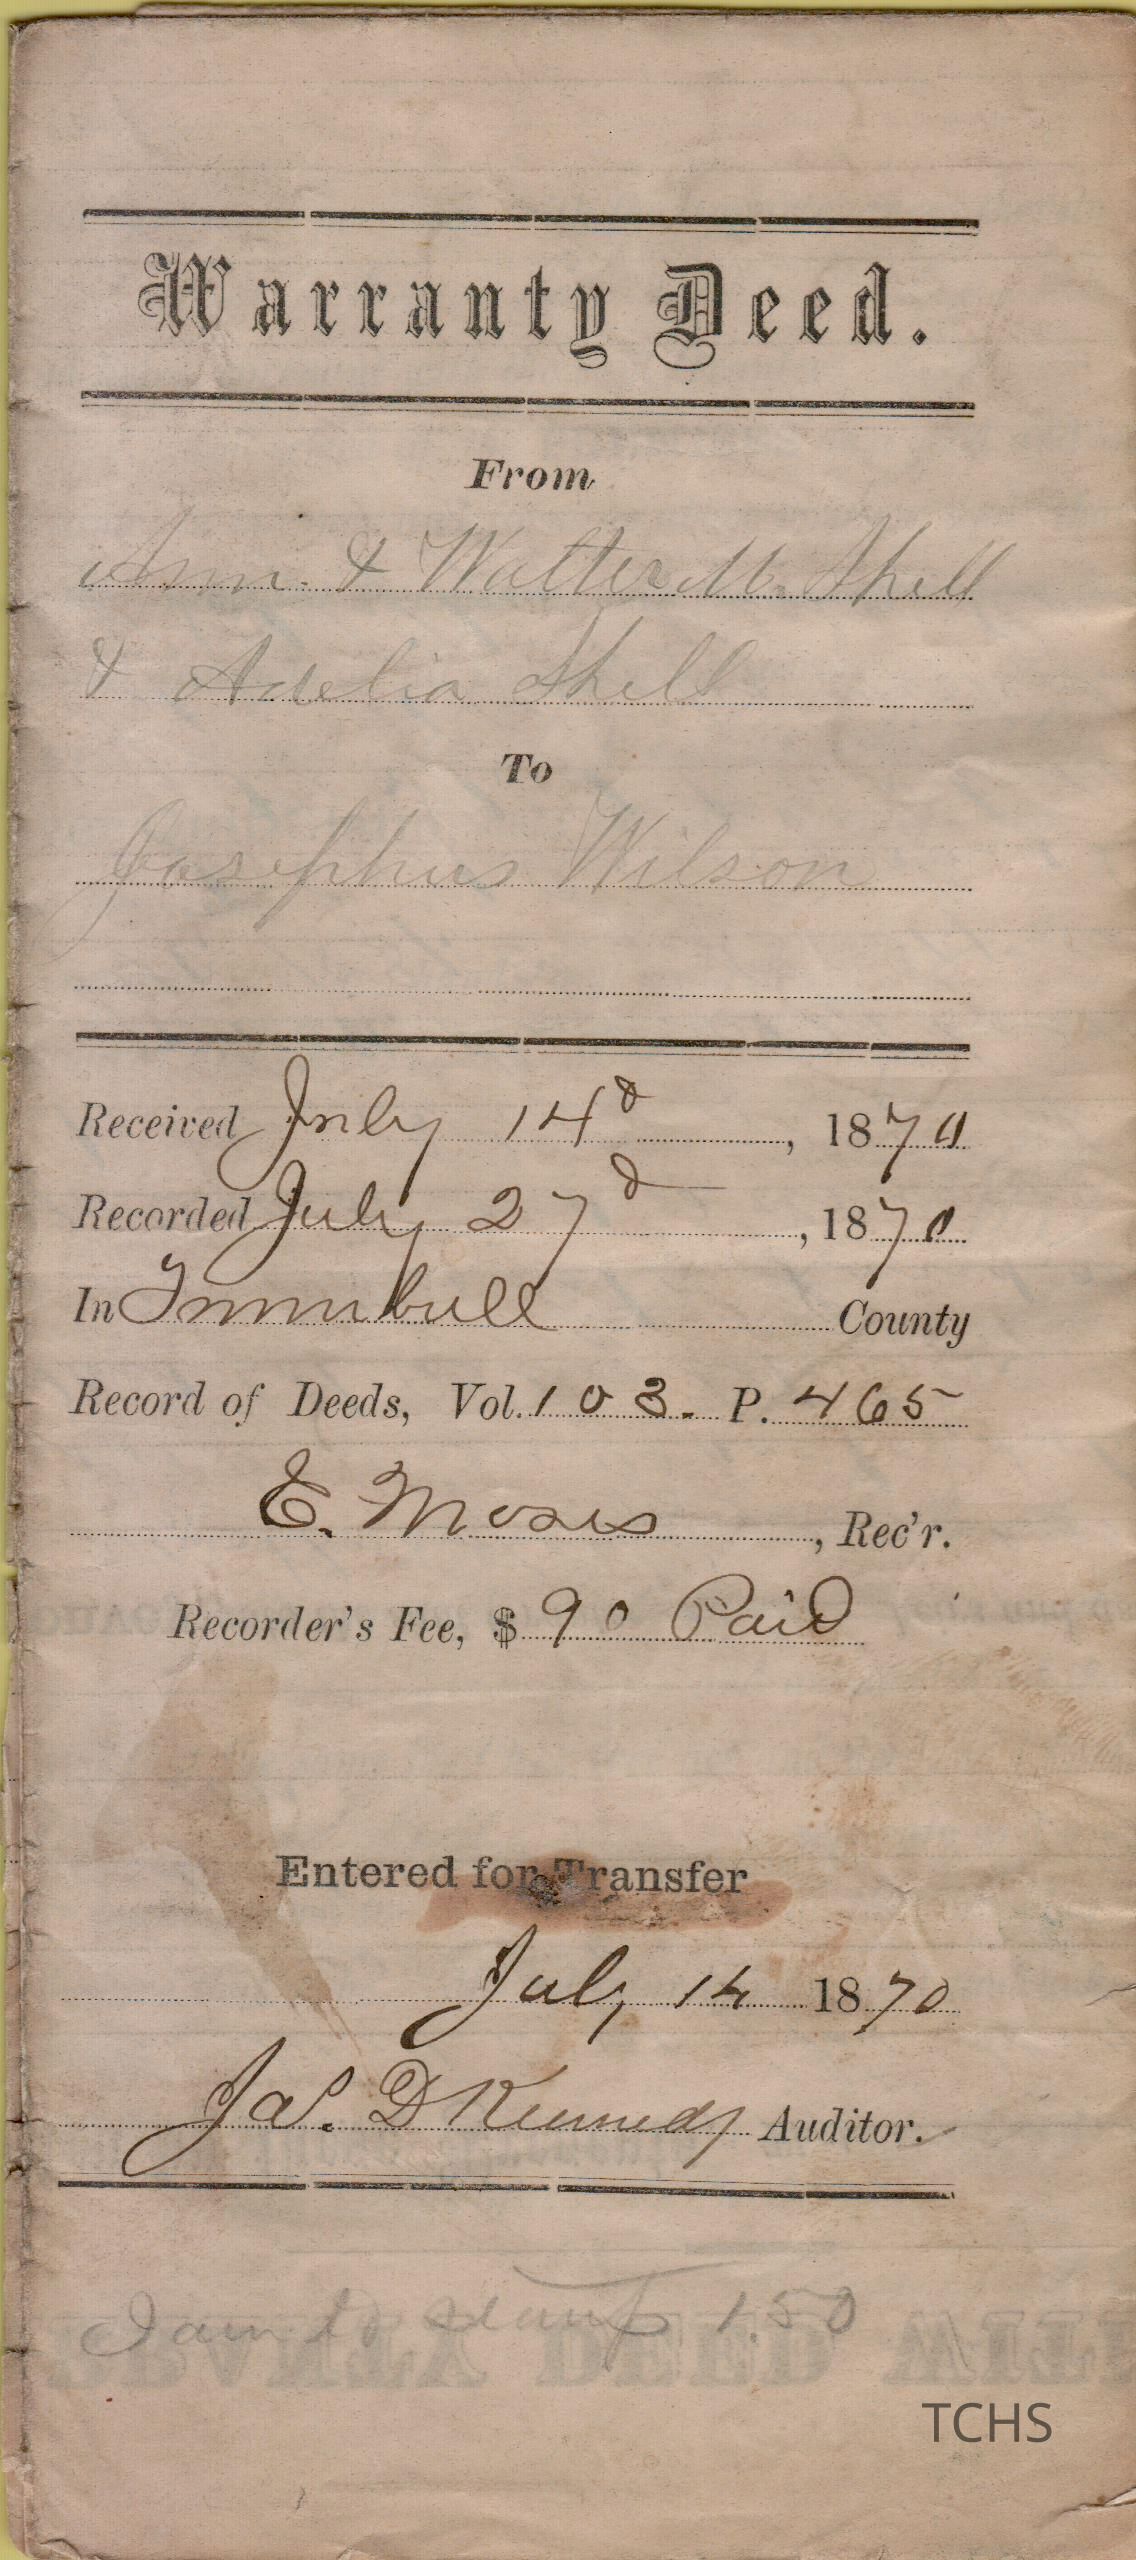 Warranty Deed.
From
Ann. & Walter M. Shell
& Adelia Shell
To
Josephus Wilson
Received July 14d, 1870
Recorded July 27d, 1870
In Trumbull County
Record of Deeds, Vol. 103. P. 465
E. Moses, Rec'r.
Recorder's Fee, $ 90 Paid
Entered for Transfer
July 14 1870
Jas. D Kennedy Auditor.
stamp 1.50
TCHS